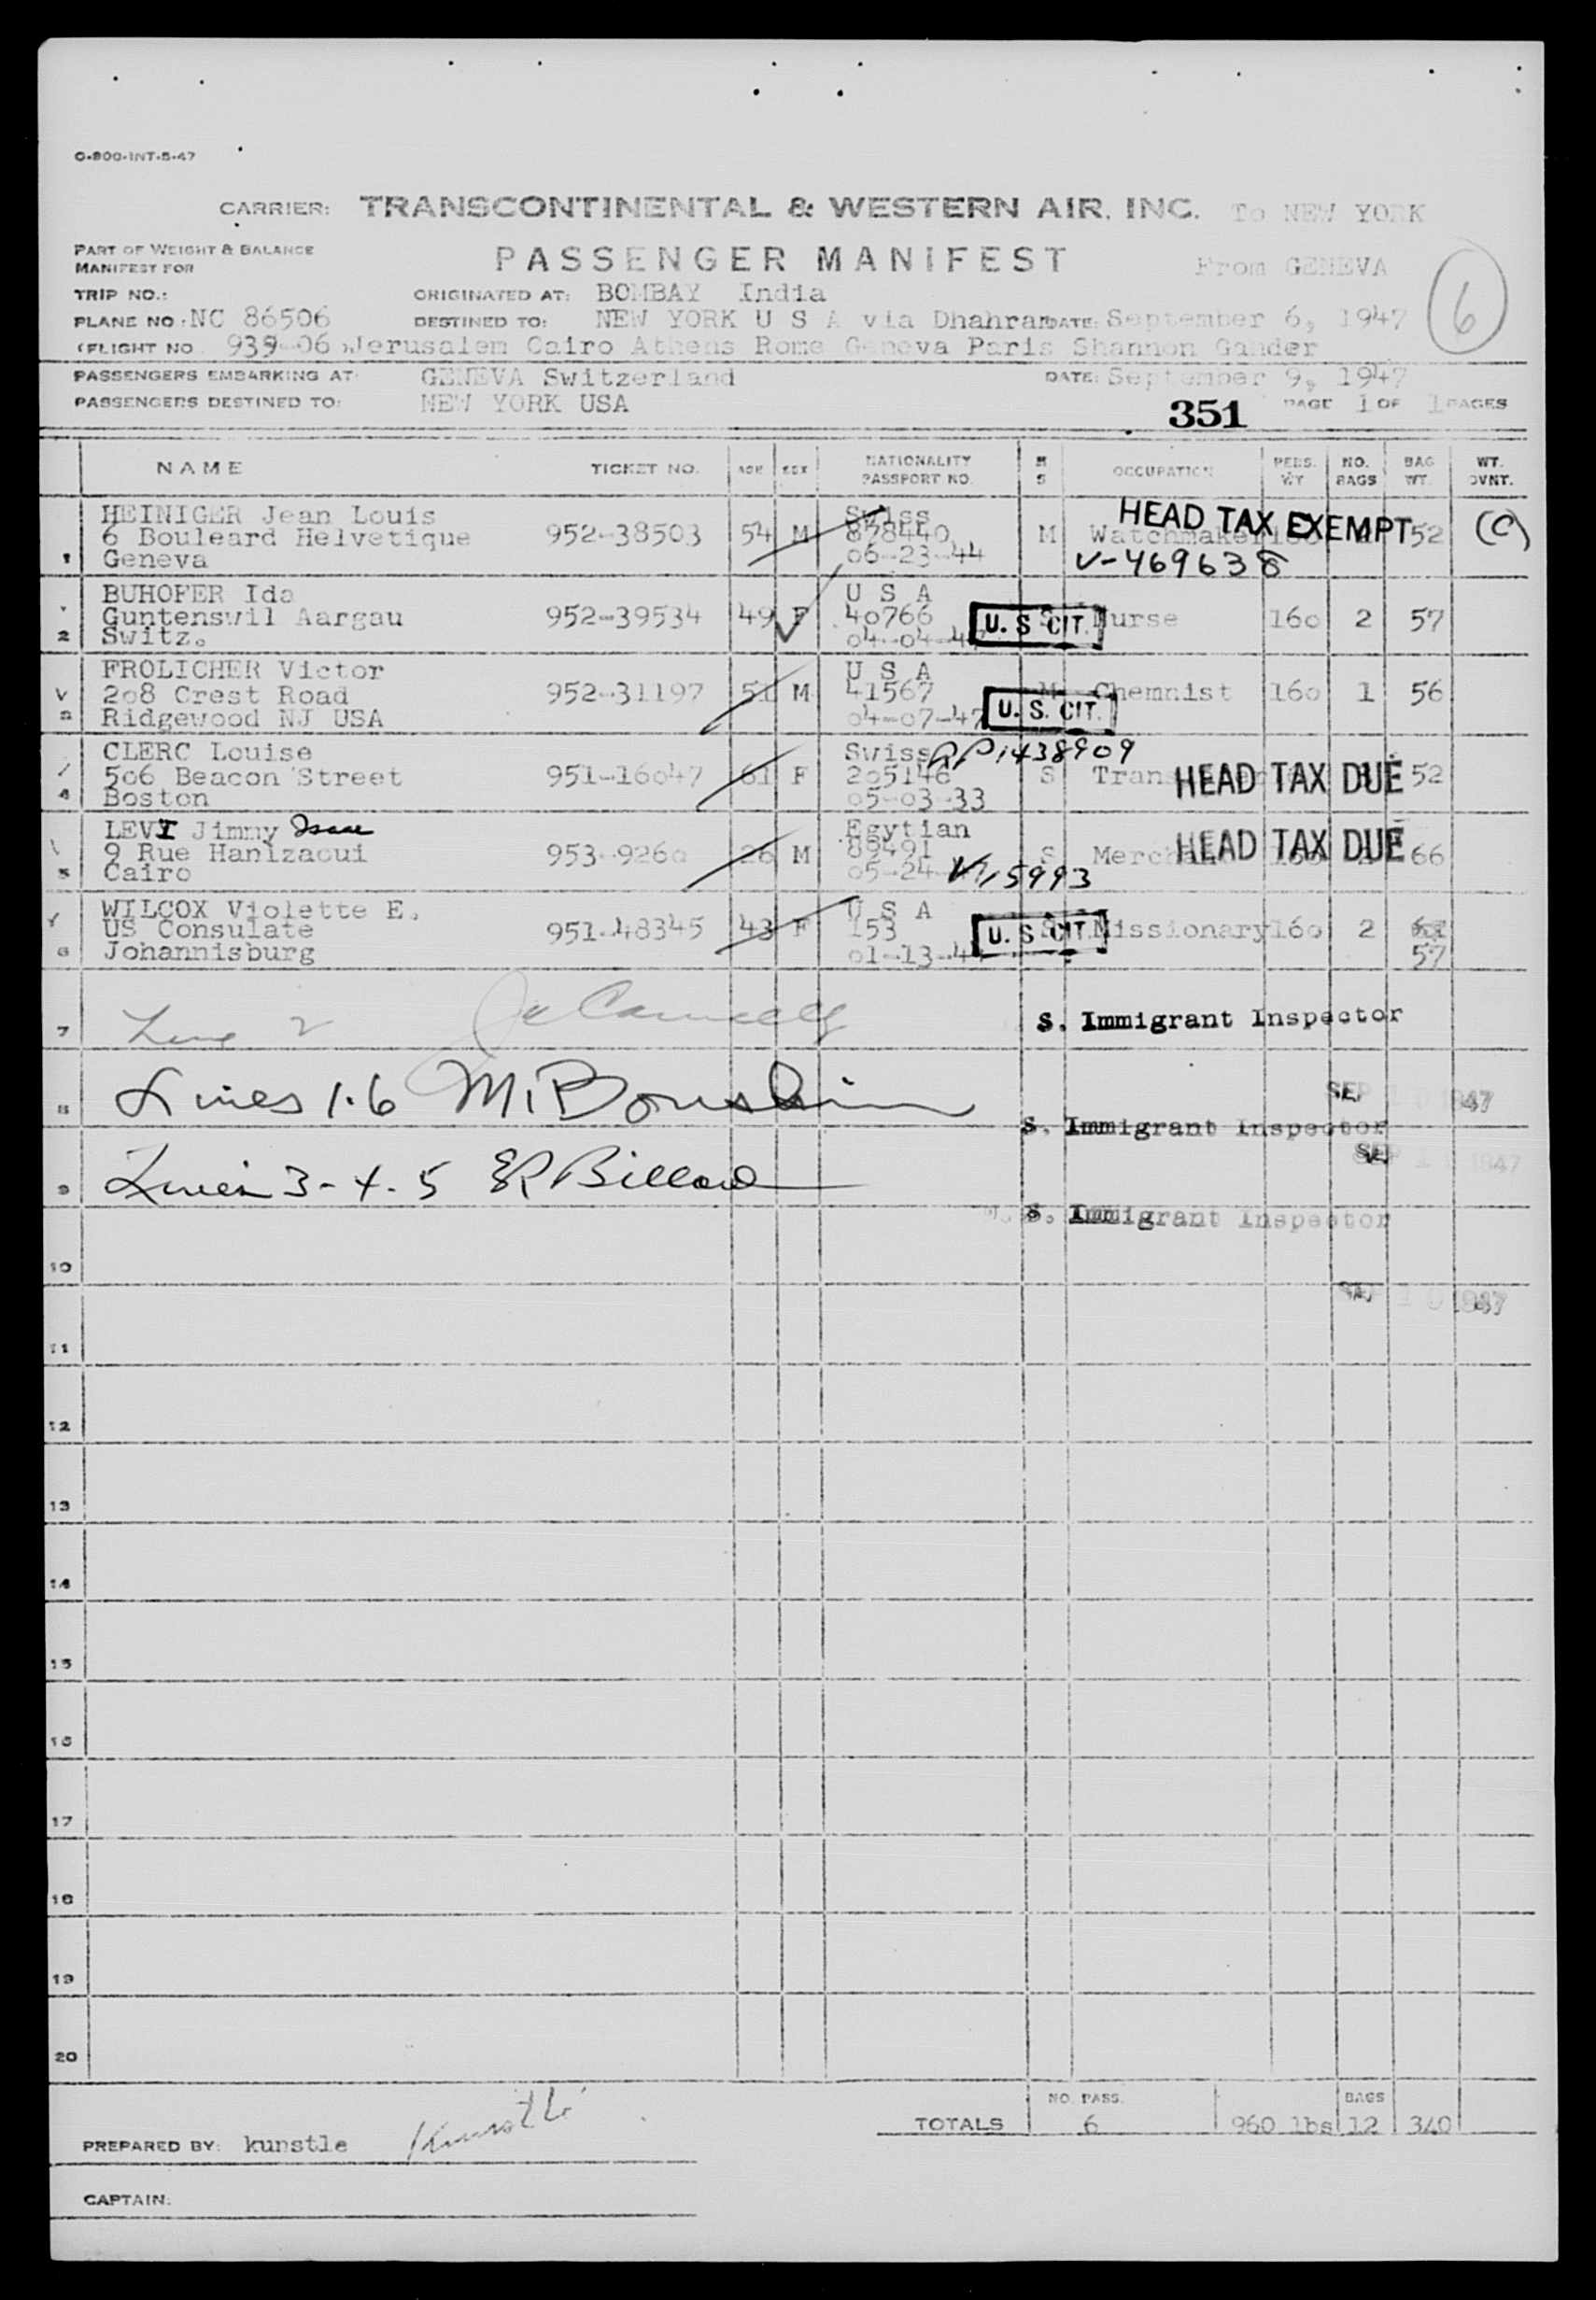 O-800-INT-5-47
CARRIER: TRANSCONTINENTAL & WESTERN AIR, INC. To NEW YORK
PART OF WEIGHT & BALANCE
MANIFEST FOR
PASSENGER MANIFEST From GENEVA
6
TRIP NO.: ORIGINATED AT: BOMBAY India
PLANE NO: NC 86506 DESTINED TO: NEW YORK U S A via Dhahran DATE: September 6, 1947
(FLIGHT NO. 939-06) Jerusalem Cairo Athens Rome Geneva Paris Shannon Gander
PASSENGERS EMBARKING AT: GENEVA Switzerland DATE: September 9, 1947
PASSENGERS DESTINED TO: NEW YORK USA 351 PAGE 1 OF 1 PAGES
NAME TICKET NO. AGE SEX NATIONALITY PASSPORT NO. M S OCCUPATION PERS. WT. NO. BAGS BAG WT. WT. OVNT.
HEINIGER Jean Louis Swiss HEAD TAX EXEMPT
6 Bouleard Helvetique 952-38503 54 M 878440 M Watchmaker 52 (C)
1 Geneva 06-23-44 V-469638
BUHOFER Ida U S A
Guntenswil Aargau 952-39534 49 F 40766 U. S. CIT. Nurse 160 2 57
2 Switz. 04-04-47
FROLICHER Victor U S A
208 Crest Road 952-31197 51 M 41567 M Chemnist 160 1 56
3 Ridgewood NJ USA 04-07-47 U. S. CIT.
CLERC Louise Swiss RP1438909
506 Beacon Street 951-16047 61 F 205146 S HEAD TAX DUE 52
4 Boston 05-03-33
LEVI Jimmy Isaac Egytian
9 Rue Hanizaoui 953-9260 26 M 89491 S Merchant HEAD TAX DUE 66
5 Cairo 05-24 V15993
WILCOX Violette E. U S A
US Consulate 951-48345 43 F 153 U. S. CIT. Missionary 160 2
6 Johannisburg 01-13-4 57
7 Line 2 S. Immigrant Inspector
8 Lines 1-6 SEP 10 1947
S. Immigrant Inspector
SEP 10 1947
9 Lines 3-4-5 ER Billard
U. S. Immigrant Inspector
10
SEP 10 1947
11
12
13
14
15
16
17
18
19
20
NO. PASS. BAGS
TOTALS 6 960 lbs 12 340
PREPARED BY: kunstle Kunstle
CAPTAIN: